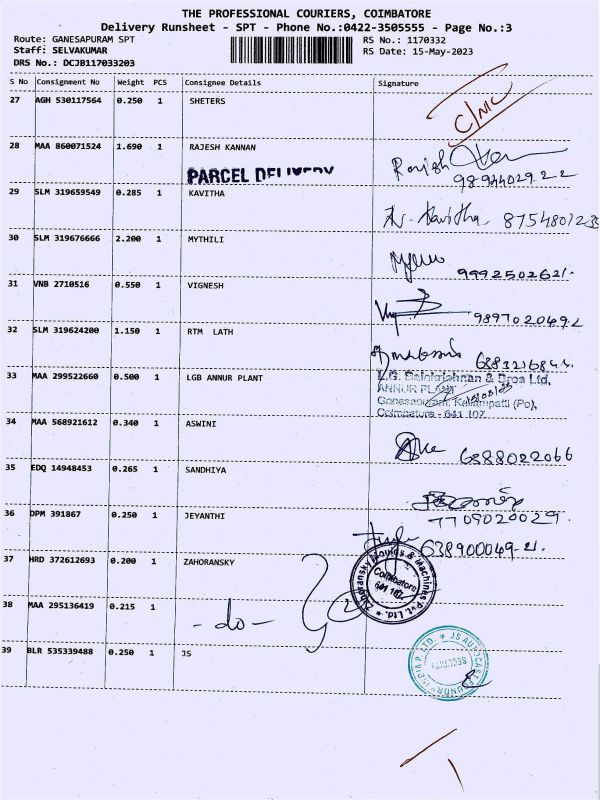 THE PROFESSIONAL COURIERS, COIMBATORE
Delivery Runsheet - SPT - Phone No.:0422-3505555 - Page No.:3
Route: GANESAPURAM SPT RS No.: 1170332
Staff: SELVAKUMAR RS Date: 15-May-2023
DRS No.: DCJB117033203
S No Consignment No Weight PCS Consignee Details Signature
27 AGH 530117564 0.250 1 SHETERS
28 MAA 860071524 1.690 1 RAJESH KANNAN
PARCEL DELIVERY
29 SLM 319659549 0.285 1 KAVITHA
Kavitha
30 SLM 319676666 2.200 1 MYTHILI
9992502621.
31 VNB 2710516 0.550 1 VIGNESH
9897020492
32 SLM 319624200 1.150 1 RTM LATH
33 MAA 299522660 0.500 1 LGB ANNUR PLANT
L.G. Balakrishnan & Bros Ltd,
ANNUR PLANT
Ganesapuram, Kallampatti (Po),
Coimbatore - 641 107.
34 MAA 568921612 0.340 1 ASWINI
6888022066
35 EDQ 14948453 0.265 1 SANDHIYA
7709020029.
36 DPM 391867 0.250 1 JEYANTHI
37 HRD 372612693 0.200 1 ZAHORANSKY
Zahoransky Moulds & Machines Pvt. Ltd.
Coimbatore
641 107.
38 MAA 295136419 0.215 1
- do -
39 BLR 535339488 0.250 1 JS
JS AUTOCAST FOUNDRY INDIA P. LTD.
SECURITY